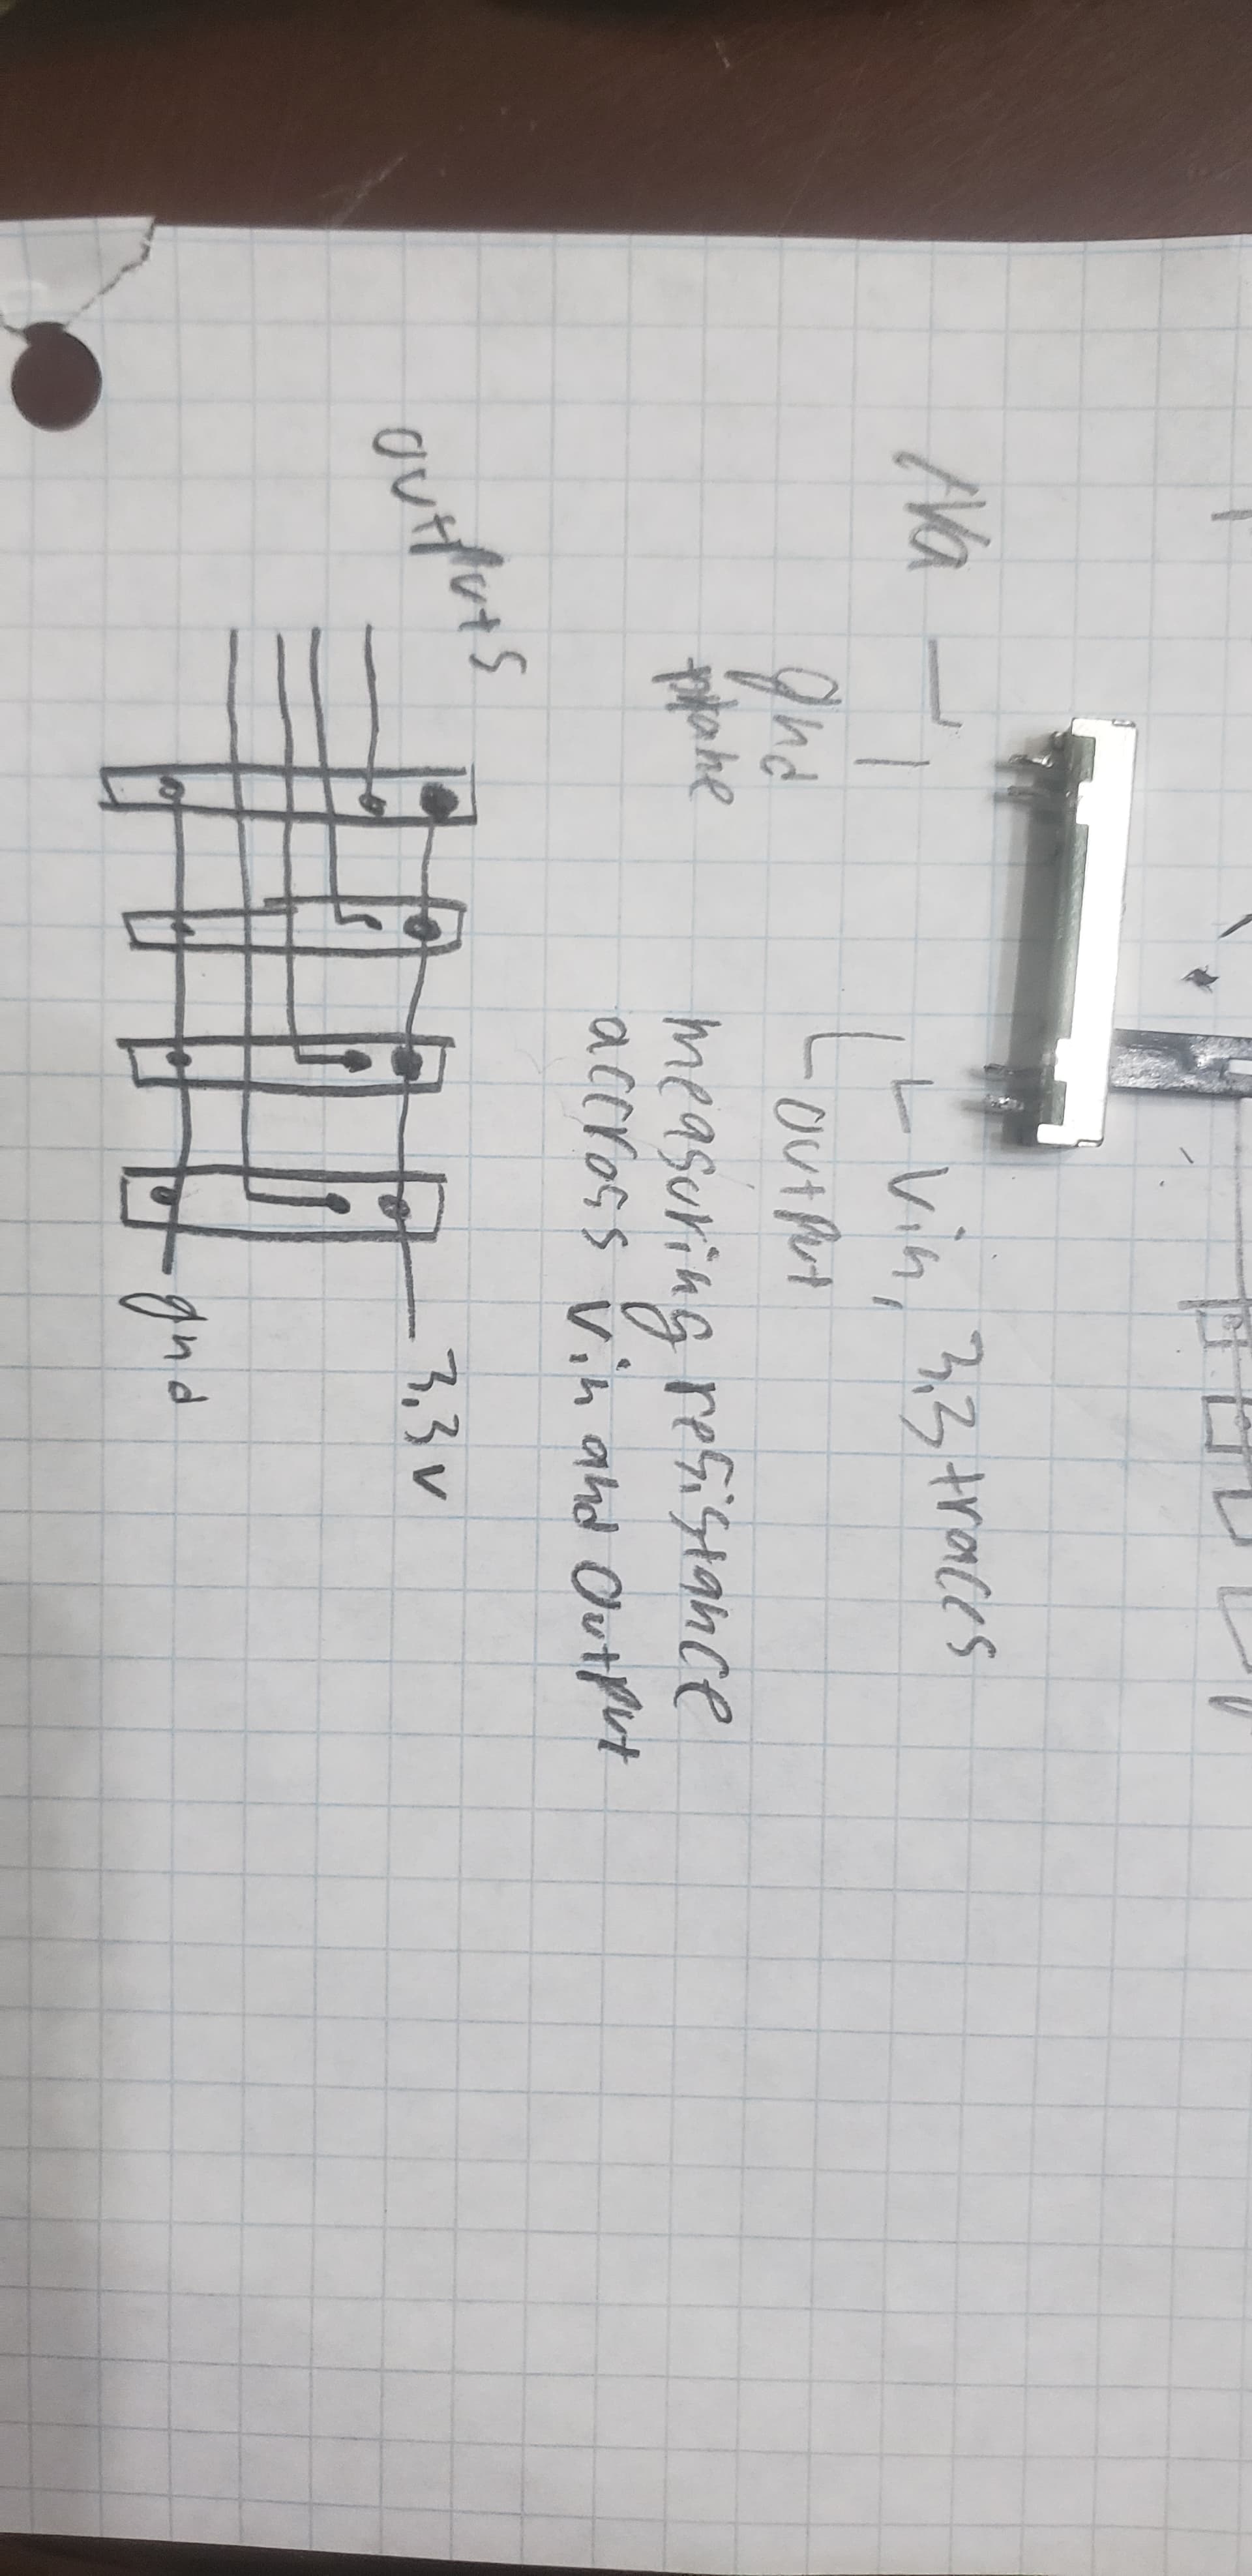 N/a
Vin, 3.3 traces
gnd
plane
output
measuring resistance
accross Vin and Output
outputs
3.3V
gnd